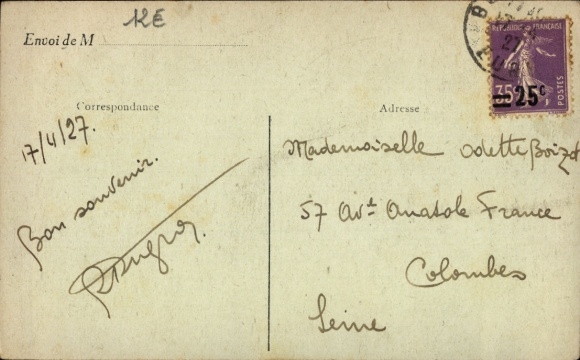 12E
Envoi de M
Correspondance
Adresse
17/4/27.
Bon souvenir.
Mademoiselle Odette
57 Av.t Anatole France
Colombes
Seine
REPUBLIQUE FRANÇAISE
35c
25c
POSTES
27
EUR